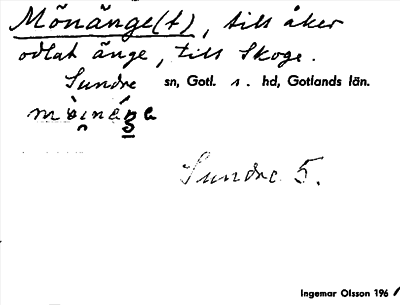 Mönänge(t), till åker
odlat änge, till Skoge.
Sundre sn, Gotl. s. hd, Gotlands län.
Sundre 5.
Ingemar Olsson 196